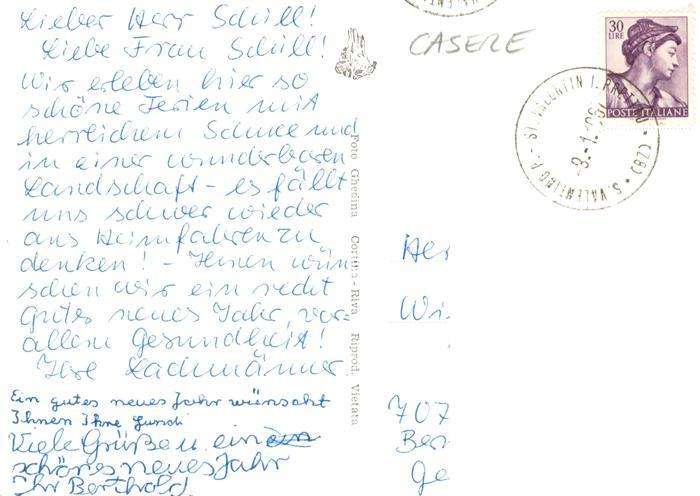 Lieber Herr Schill!
Liebe Frau Schill!
Wir erleben hier so
schöne Ferien mit
herrlichem Schnee und
in einer wunderbaren
Landschaft - es fällt
uns schwer wieder
ans Heimfahren zu
denken! - Ihnen wün
schen wir ein recht
gutes neues Jahr, vor-
allem Gesundheit!
Ihre Lachmänner
Ein gutes neues Jahr wünscht
Ihnen Ihre Gundi
Viele Grüße u. ein
schönes neues Jahr
Ihr Berthold
Foto Ghedina Cortina - Riva Riprod. Vietata
CASERE
30
LIRE
POSTE ITALIANE
ST. VALENTIN
S. VALENTINO
(BZ)
Her
Wi
707
Ber
Ge